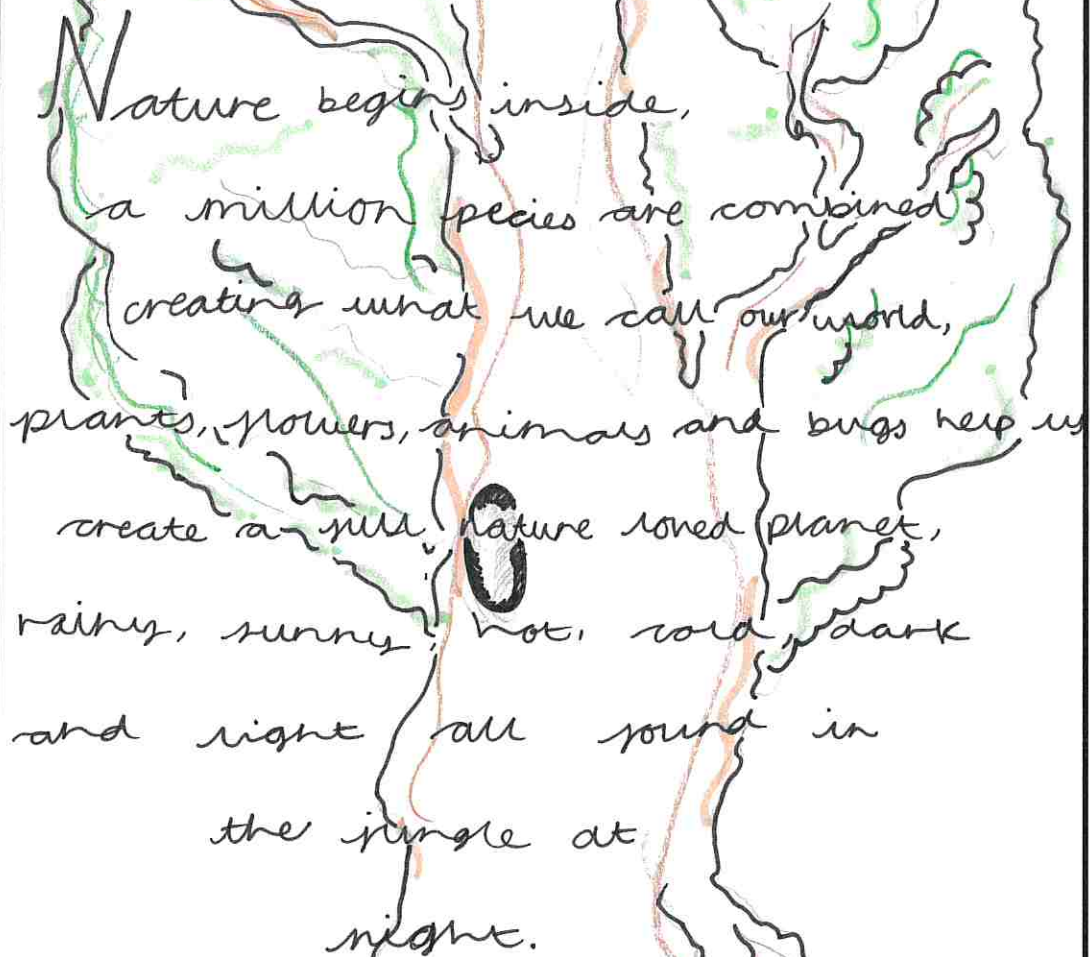 Nature begins inside,
a million pecies are combined
creating what we call our world,
plants, flowers, animals and bugs help us
create a full nature loved planet,
rainy, sunny, hot, cold, dark
and light all found in
the jungle at
night.